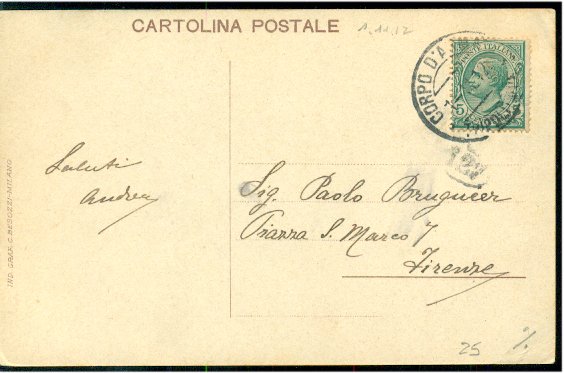 CARTOLINA POSTALE
1.11.12
CORPO D'A
POSTE ITALIANE
Saluti
Andrea
Sig. Paolo Brugueer
Piazza S. Marco 7
Firenze
IND. GRAF. G. BESOZZI-MILANO
25
%